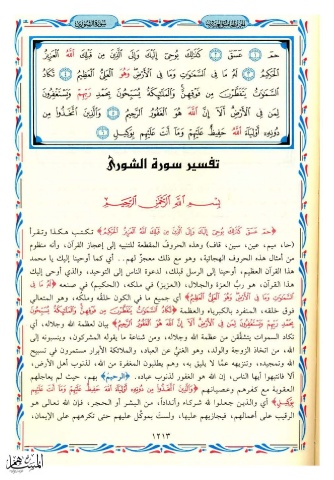 حمٓ ۝١ عٓسٓقٓ ۝٢ كَذَٰلِكَ يُوحِيٓ إِلَيْكَ وَإِلَى ٱلَّذِينَ مِن قَبْلِكَ ٱللَّهُ ٱلْعَزِيزُ
ٱلْحَكِيمُ ۝٣ لَهُۥ مَا فِي ٱلسَّمَٰوَٰتِ وَمَا فِي ٱلْأَرْضِ وَهُوَ ٱلْعَلِيُّ ٱلْعَظِيمُ ۝٤ تَكَادُ
ٱلسَّمَٰوَٰتُ يَتَفَطَّرْنَ مِن فَوْقِهِنَّ وَٱلْمَلَٰٓئِكَةُ يُسَبِّحُونَ بِحَمْدِ رَبِّهِمْ وَيَسْتَغْفِرُونَ
لِمَن فِي ٱلْأَرْضِ أَلَآ إِنَّ ٱللَّهَ هُوَ ٱلْغَفُورُ ٱلرَّحِيمُ ۝٥ وَٱلَّذِينَ ٱتَّخَذُوا۟ مِن
دُونِهِۦٓ أَوْلِيَآءَ ٱللَّهُ حَفِيظٌ عَلَيْهِمْ وَمَآ أَنتَ عَلَيْهِم بِوَكِيلٍ ۝٦
تفسير سورة الشورى
بسم الله الرحمن الرحيم
﴿حمٓ عٓسٓقٓ كَذَٰلِكَ يُوحِيٓ إِلَيْكَ وَإِلَى ٱلَّذِينَ مِن قَبْلِكَ ٱللَّهُ ٱلْعَزِيزُ ٱلْحَكِيمُ﴾ تكتب هكذا وتقرأ
(حا، ميم، عين، سين، قاف) وهذه الحروف المقطعة للتنبيه إلى إعجاز القرآن، وأنه منظوم
من أمثال هذه الحروف الهجائية، وهو مع ذلك معجز لهم.. أي كما أوحينا إليك يا محمد
هذا القرآن العظيم، أوحينا إلى الرسل قبلك، لدعوة الناس إلى التوحيد، والذي أوحى إليك
هذا القرآن، هو رب العزة والجلال، (العزيز) في ملكه، (الحكيم) في صنعه ﴿لَهُۥ مَا فِي
ٱلسَّمَٰوَٰتِ وَمَا فِي ٱلْأَرْضِ وَهُوَ ٱلْعَلِيُّ ٱلْعَظِيمُ﴾ أي جميع ما في الكون خلقه وملكه، وهو المتعالي
فوق خلقه، المنفرد بالكبرياء والعظمة ﴿تَكَادُ ٱلسَّمَٰوَٰتُ يَتَفَطَّرْنَ مِن فَوْقِهِنَّ وَٱلْمَلَٰٓئِكَةُ يُسَبِّحُونَ
بِحَمْدِ رَبِّهِمْ وَيَسْتَغْفِرُونَ لِمَن فِي ٱلْأَرْضِ أَلَآ إِنَّ ٱللَّهَ هُوَ ٱلْغَفُورُ ٱلرَّحِيمُ﴾ بيان لعظمة الله وجلاله، أي
تكاد السموات يتشققن من عظمة الله وجلاله، ومن شناعة ما يقوله المشركون، وينسبونه إلى
الله، من اتخاذ الزوجة والولد، وهو الغني عن العباد، والملائكة الأبرار مستمرون في تسبيح
الله وتمجيده، وتنزيهه عما لا يليق به، وهم يطلبون المغفرة من الله، لذنوب أهل الأرض،
ألا فانتبهوا أيها الناس، إن الله هو الغفور لذنوب عباده. (الرحيم) بهم، حيث لم يعاجلهم
العقوبة مع كفرهم وعصيانهم ﴿وَٱلَّذِينَ ٱتَّخَذُوا۟ مِن دُونِهِۦٓ أَوْلِيَآءَ ٱللَّهُ حَفِيظٌ عَلَيْهِمْ وَمَآ أَنتَ عَلَيْهِم
بِوَكِيلٍ﴾ أي والذين جعلوا لله شركاء وأنداداً، من البشر أو الحجر، فإن الله تعالى هو
الرقيب على أعمالهم، فيجازيهم عليها، ولست بموكل عليهم حتى تكرههم على الإيمان،
١٢١٣